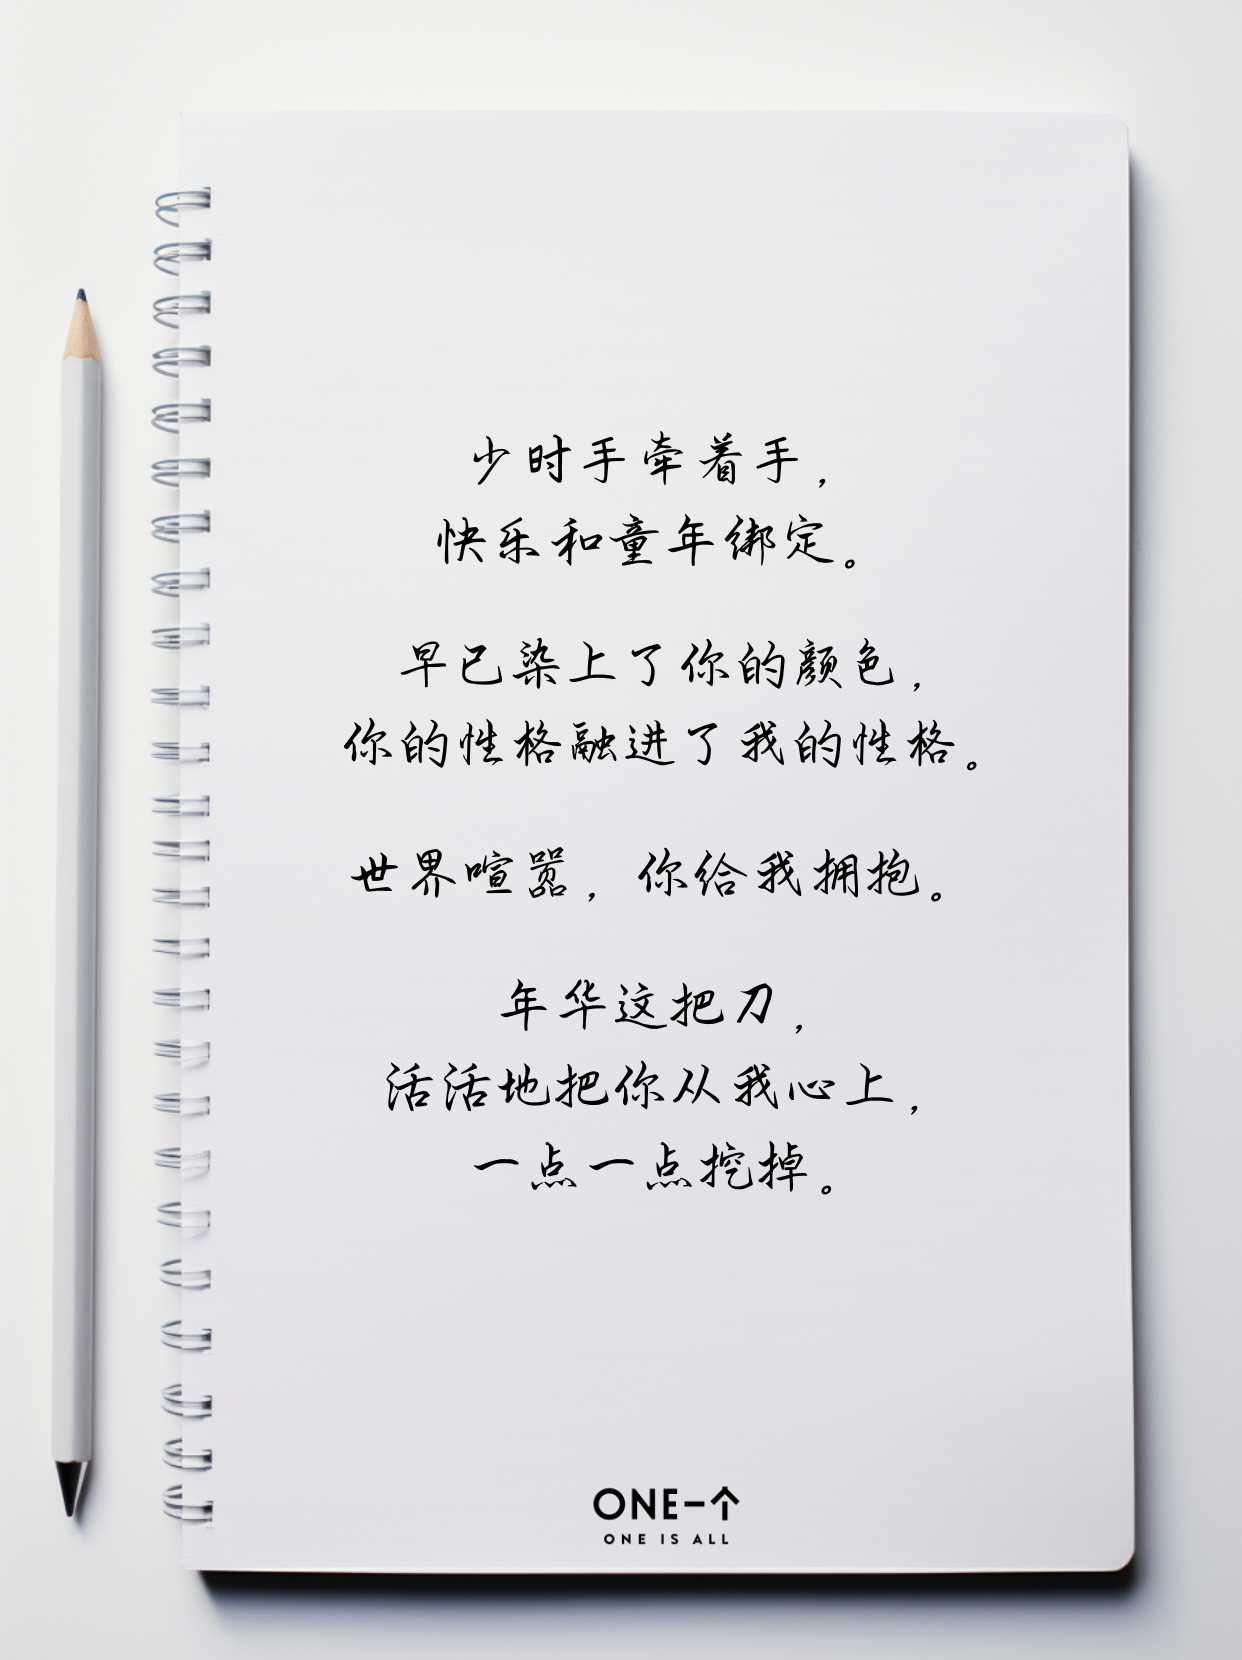 少时手牵着手，
快乐和童年绑定。
早已染上了你的颜色，
你的性格融进了我的性格。
世界喧嚣，你给我拥抱。
年华这把刀，
活活地把你从我心上，
一点一点挖掉。
ONE一个
ONE IS ALL